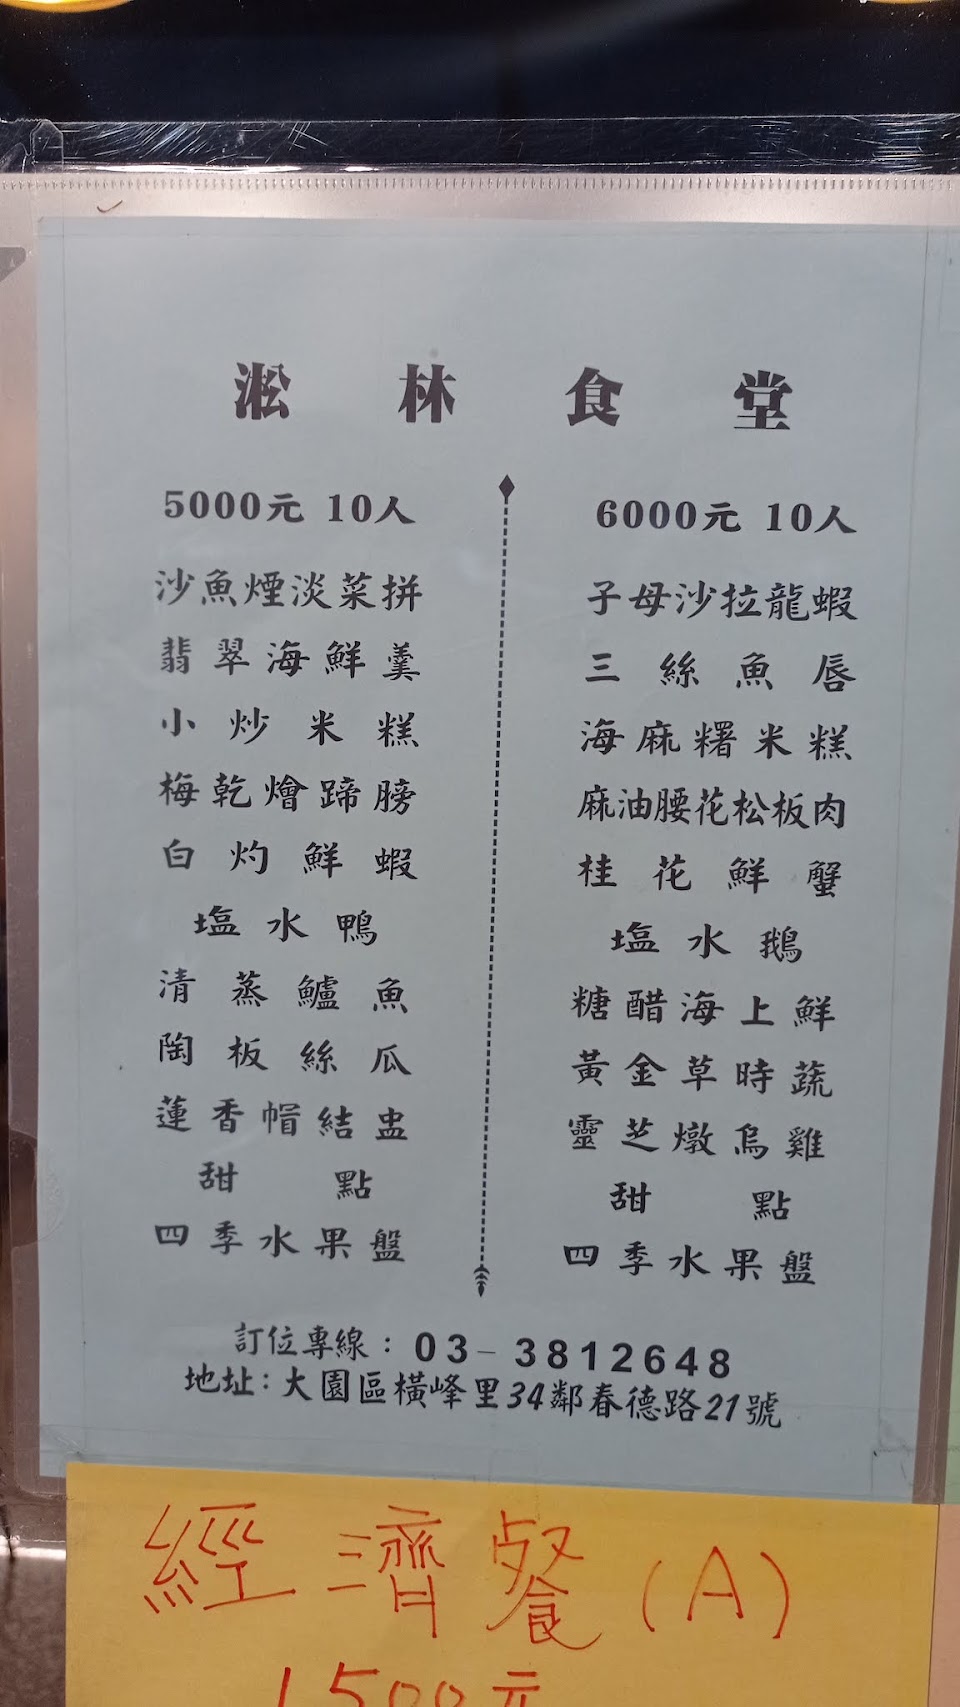 淞林食堂
5000元 10人
沙魚煙淡菜拼
翡翠海鮮羹
小炒米糕
梅乾燴蹄膀
白灼鮮蝦
塩水鴨
清蒸鱸魚
陶板絲瓜
蓮香帽結盅
甜點
四季水果盤
6000元 10人
子母沙拉龍蝦
三絲魚唇
海麻糬米糕
麻油腰花松板肉
桂花鮮蟹
塩水鵝
糖醋海上鮮
黃金草時蔬
靈芝燉烏雞
甜點
四季水果盤
訂位專線：03-3812648
地址：大園區橫峰里34鄰春德路21號
經濟餐(A)
1500元